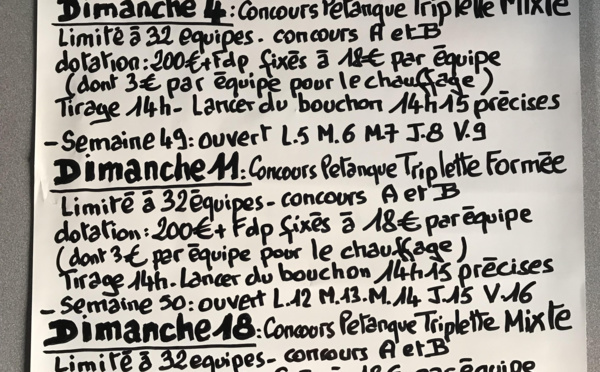 Dimanche 4: Concours Petanque Triplette Mixte
Limité à 32 équipes - concours A et B
dotation: 200€ + Fdp fixés à 18€ par équipe
(dont 3€ par équipe pour le chauffage)
Tirage 14h - Lancer du bouchon 14h15 précises
- Semaine 49: ouvert L.5 M.6 M7 J.8 V.9
Dimanche 11: Concours Petanque Triplette Formée
Limité à 32 équipes - concours A et B
dotation: 200€ + Fdp fixés à 18€ par équipe
(dont 3€ par équipe pour le chauffage)
Tirage 14h - Lancer du bouchon 14h15 précises
- Semaine 50: ouvert L.12 M.13. M.14 J.15 V.16
Dimanche 18: Concours Petanque Triplette Mixte
Limité à 32 équipes - concours A et B
18€ par équipe